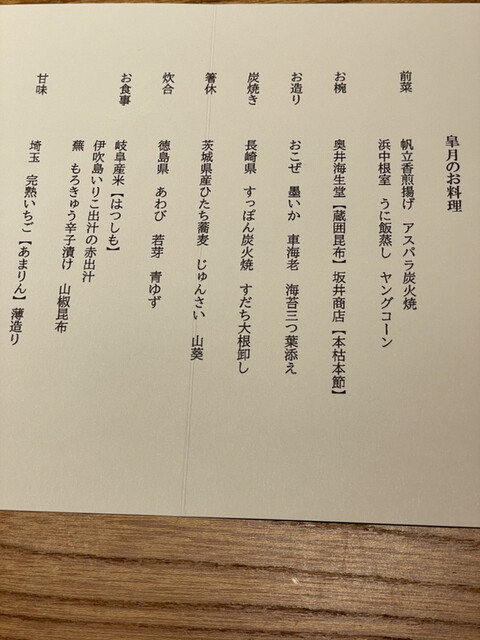 皐月のお料理
前菜　帆立香煎揚げ　アスパラ炭火焼
浜中根室　うに飯蒸し　ヤングコーン
お椀　奥井海生堂【蔵囲昆布】坂井商店【本枯本節】
お造り　おこぜ　墨いか　車海老　海苔三つ葉添え
炭焼き　長崎県　すっぽん炭火焼　すだち大根卸し
箸休　茨城県産ひたち蕎麦　じゅんさい　山葵
炊合　徳島県　あわび　若芽　青ゆず
お食事　岐阜産米【はつしも】
伊吹島いりこ出汁の赤出汁
蕪　もろきゅう辛子漬け　山椒昆布
甘味　埼玉　完熟いちご【あまりん】薄造り